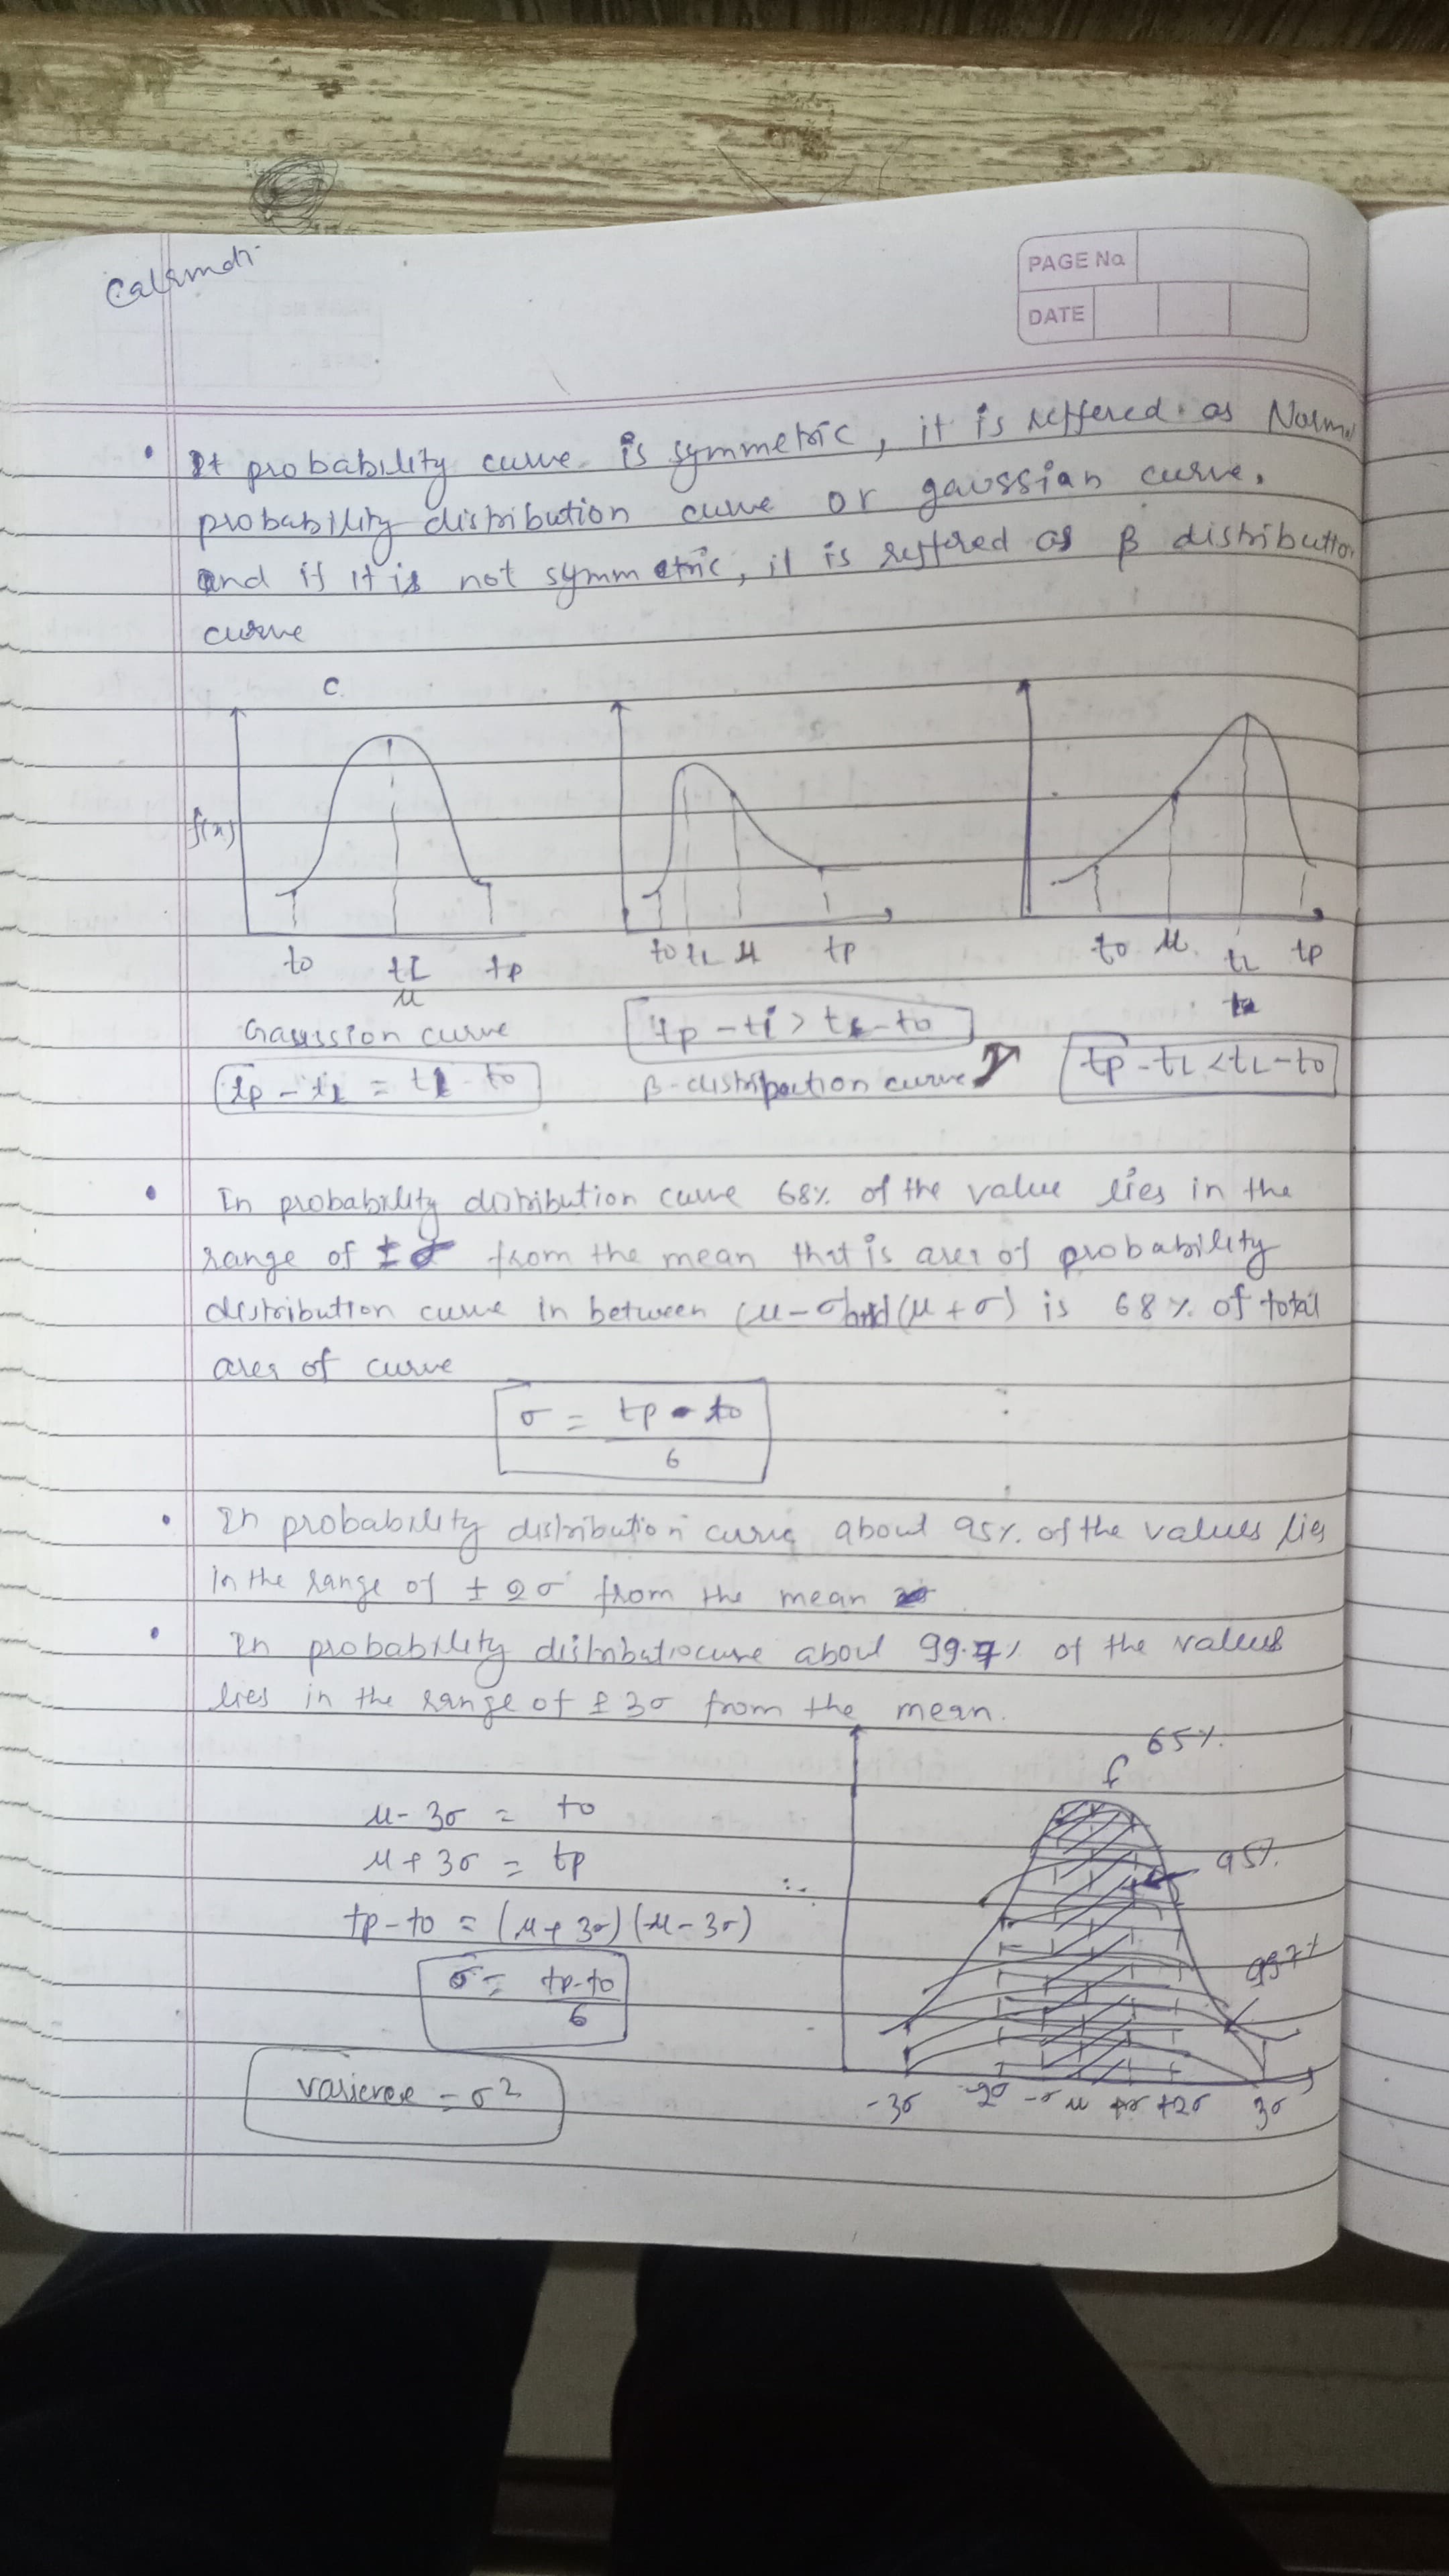 PAGE No
DATE
• If probability curve is symmetric, it is reffered as Normal
probability distribution curve or gaussian curve.
and if it is not symmetric, it is reffered as β distribution
curve
C.
f(x)
to tL tp
μ
to tL μ tp
to μ. tL tp
Gaussion curve
tp - tL = tL - to
tp - tL > tL - to
β-distribution curve
tp - tL < tL - to
• In probability distribution curve 68% of the value lies in the
range of ± σ from the mean that is area of probability
distribution curve in between (μ - σ) and (μ + σ) is 68% of total
area of curve
σ = tp - to
6
• In probability distribution curve about 95% of the values lies
in the range of ± 2σ from the mean
• In probability distributiocurve about 99.7% of the values
lies in the range of ± 3σ from the mean.
μ - 3σ = to
μ + 3σ = tp
tp - to = (μ + 3σ) (μ - 3σ)
σ = tp - to
6
= σ²
65%.
95%.
99.7%
-3σ -2σ -σ μ +σ +2σ 3σ